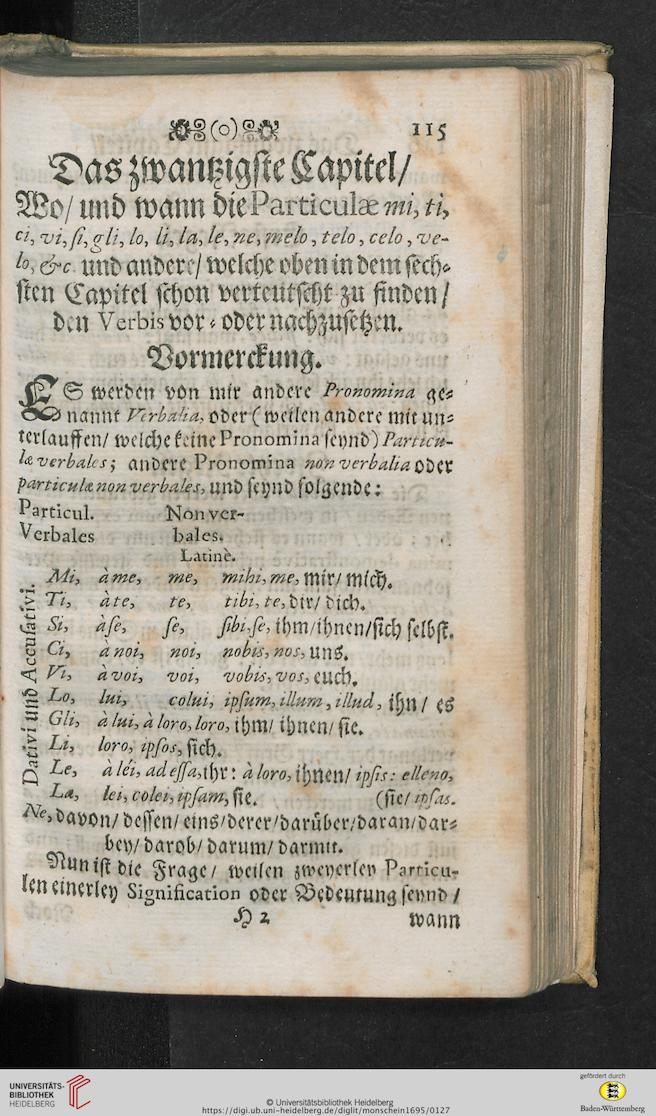 (o) 115
Das zwantzigste Capitel/
Wo/ und wann die Particulæ mi, ti,
ci, vi, si, gli, lo, li, la, le, ne, melo, telo, celo, ve-
lo, &c. und andere/ welche oben in dem sech-
sten Capitel schon verteutscht zu finden/
den Verbis vor- oder nachzusetzen.
Vormerckung.
ES werden von mir andere Pronomina ge-
nannt Verbalia, oder (weilen andere mit un-
terlauffen/ welche keine Pronomina seynd) Particu-
læ verbales; andere Pronomina non verbalia oder
particulæ non verbales, und seynd folgende:
Particul. Non ver-
Verbales bales.
Latinè.
Dativi und Accusativi.
Mi, à me, me, mihi, me, mir/ mich.
Ti, à te, te, tibi, te, dir/ dich.
Si, à se, se, sibi, se, ihm/ihnen/sich selbst.
Ci, à noi, noi, nobis, nos, uns.
Vi, à voi, voi, vobis, vos, euch.
Lo, lui, colui, ipsum, illum, illud, ihn/ es
Gli, à lui, à loro, loro, ihm/ ihnen/ sie.
Li, loro, ipsos, sich.
Le, à léi, ad essa, ihr: à loro, ihnen/ ipsis: elleno,
La, lei, colei, ipsam, sie. (sie/ ipsas.
Ne, davon/ dessen/ eins/derer/darüber/daran/dar-
bey/ darob/ darum/ darmit.
Nun ist die Frage/ weilen zweyerley Particu-
len einerley Signification oder Bedeutung seynd/
H 2 wann
UNIVERSITÄTS-
BIBLIOTHEK
HEIDELBERG
© Universitätsbibliothek Heidelberg
https://digi.ub.uni-heidelberg.de/diglit/monschein1695/0127
gefördert durch
Baden-Württemberg